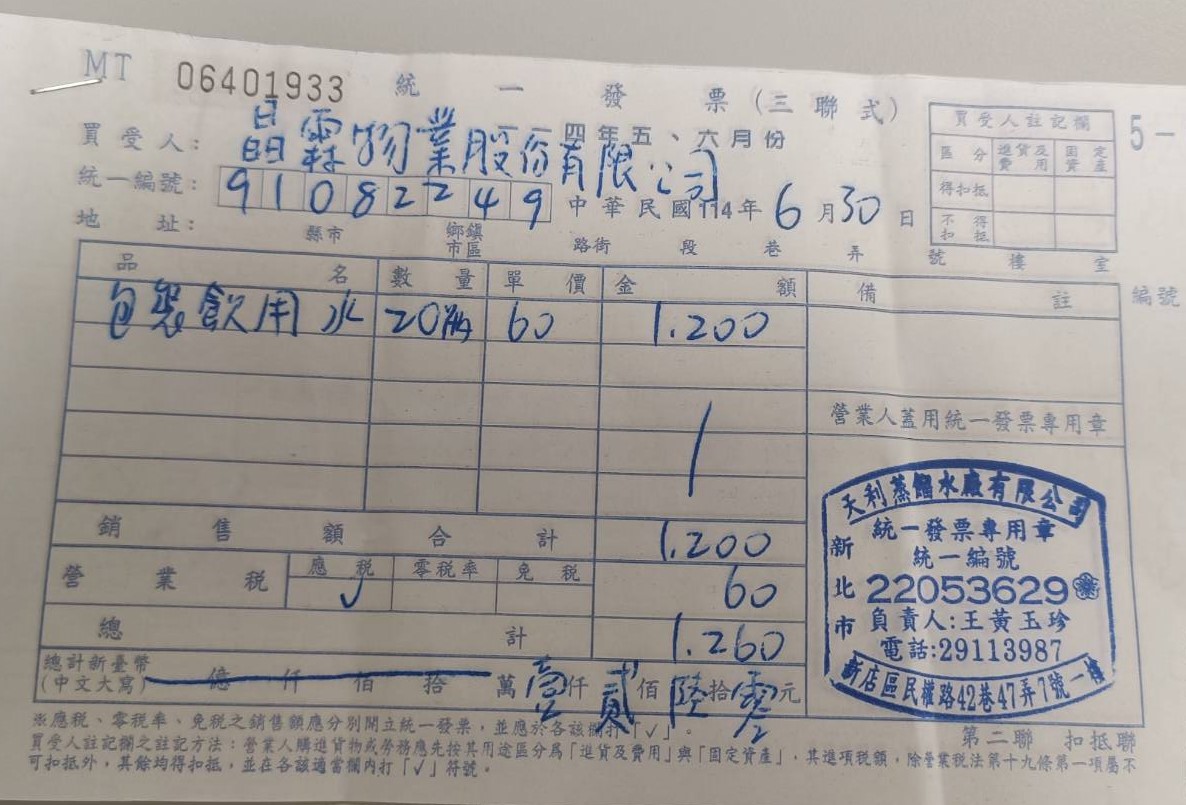 MT 06401933 統一發票(三聯式)
一一四年五、六月份
買受人: 晶霖物業股份有限公司
統一編號: 91082249
中華民國114年6月30日
地址: 縣市 鄉鎮市區 路街 段 巷 弄 號 樓 室
買受人註記欄
區分 進貨及費用 固定資產
得扣抵
不得扣抵
5-
編號
品名 數量 單價 金額 備註
包裝飲用水 20瓶 60 1.200
營業人蓋用統一發票專用章
銷售額合計 1.200
營業稅 應稅 零稅率 免稅 60
✓
總計 1.260
總計新臺幣
(中文大寫) 億仟佰拾萬壹仟貳佰陸拾零元
天利蒸餾水廠有限公司
統一發票專用章
統一編號
22053629
新北市
負責人:王黃玉珍
電話:29113987
新店區民權路42巷47弄7號一樓
※應稅、零稅率、免稅之銷售額應分別開立統一發票,並應於各該欄打「✓」。
第二聯 扣抵聯
買受人註記欄之註記方法:營業人購進貨物或勞務應先按其用途區分為「進貨及費用」與「固定資產」,其進項稅額,除營業稅法第十九條第一項屬不
可扣抵外,其餘均得扣抵,並在各該適當欄內打「✓」符號。